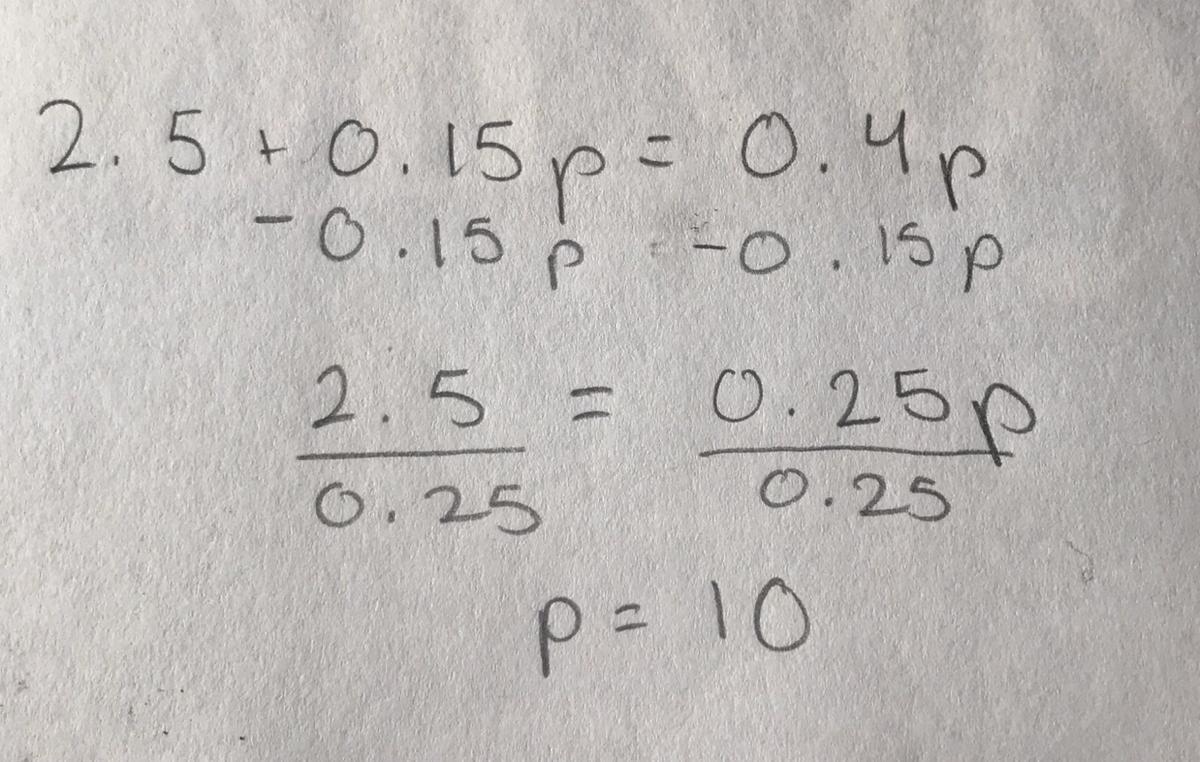 2.5 + 0.15p = 0.4p
-0.15p -0.15p
2.5 = 0.25p
0.25 0.25
p = 10